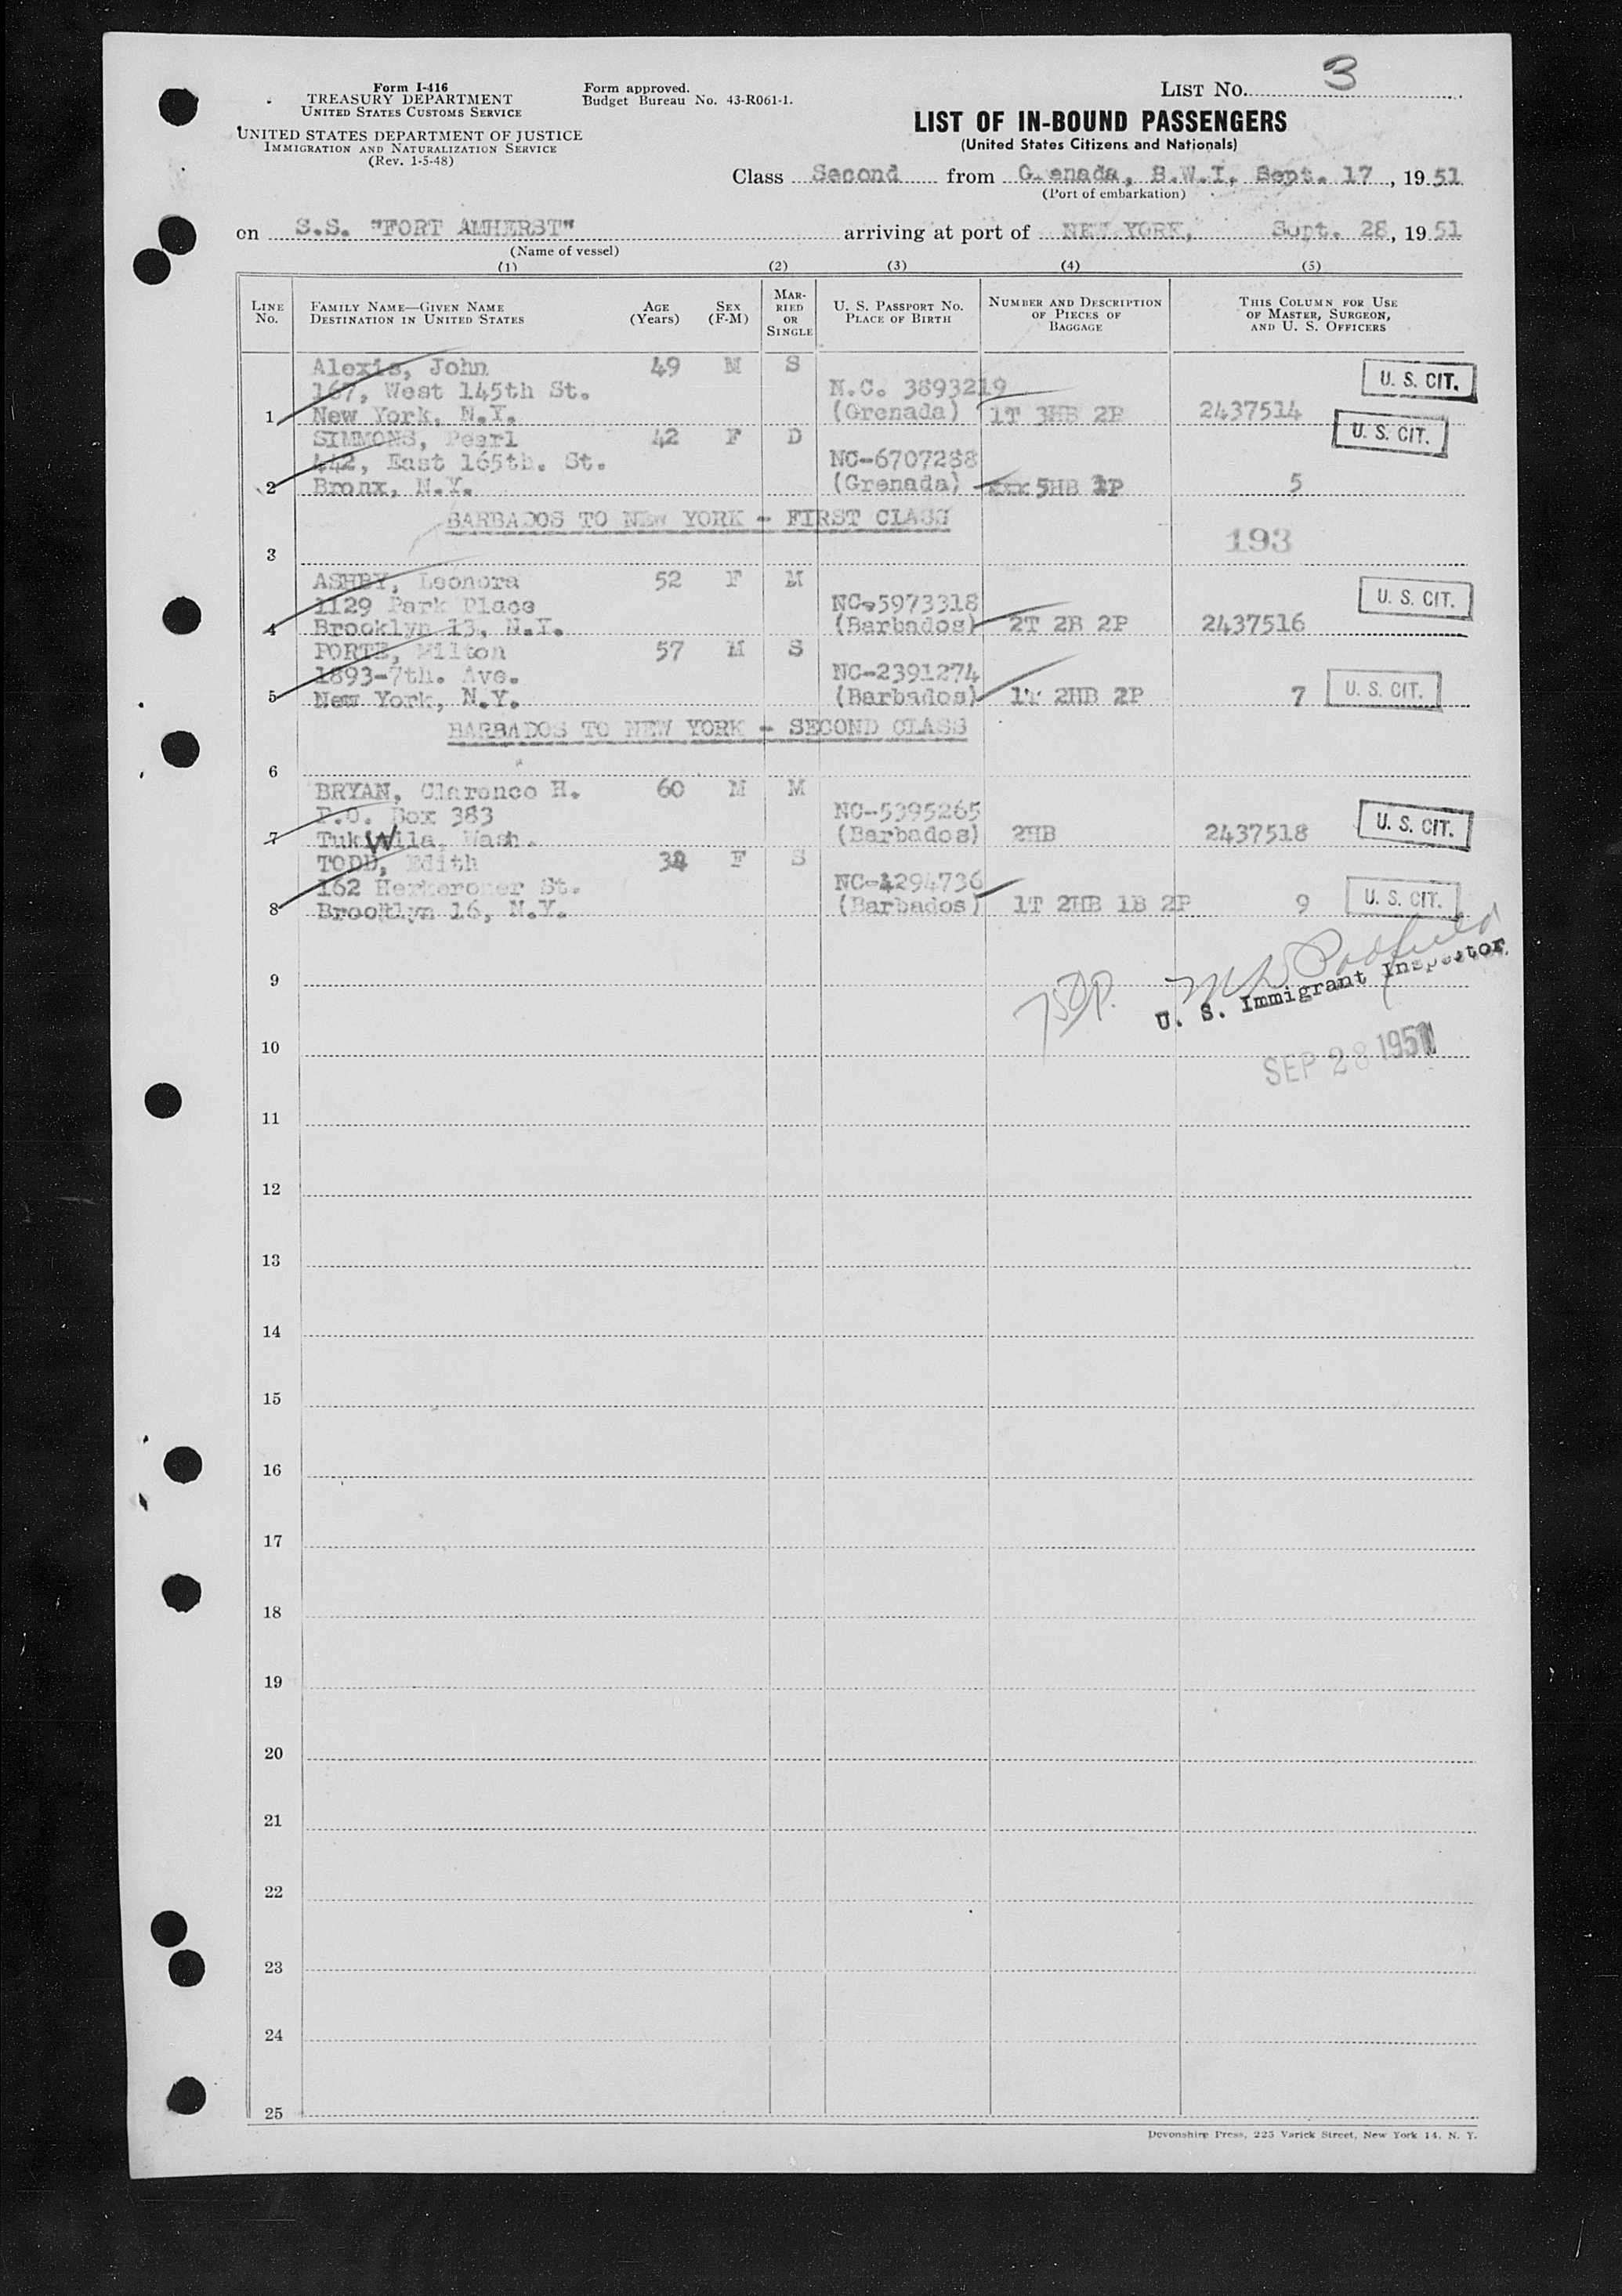 Form I-416
TREASURY DEPARTMENT
UNITED STATES CUSTOMS SERVICE
UNITED STATES DEPARTMENT OF JUSTICE
IMMIGRATION AND NATURALIZATION SERVICE
(Rev. 1-5-48)
Form approved.
Budget Bureau No. 43-R061-1.
LIST NO. 3
LIST OF IN-BOUND PASSENGERS
(United States Citizens and Nationals)
Class Second from Grenada, B.W.I, Sept. 17, 1951
(Port of embarkation)
on S.S. "FORT AMHERST" arriving at port of NEW YORK, Sept. 28, 1951
(Name of vessel)
(1) (2) (3) (4) (5)
LINE NO. FAMILY NAME—GIVEN NAME DESTINATION IN UNITED STATES AGE (Years) SEX (F-M) MARRIED OR SINGLE U. S. PASSPORT NO. PLACE OF BIRTH NUMBER AND DESCRIPTION OF PIECES OF BAGGAGE THIS COLUMN FOR USE OF MASTER, SURGEON, AND U. S. OFFICERS
Alexis, John 49 M S U. S. CIT.
167, West 145th St. N.C. 3893219
1 New York, N.Y. (Grenada) 1T 3HB 2P 2437514
SIMMONS, Pearl 42 F D U. S. CIT.
442, East 165th. St. NC-6707288
2 Bronx, N.Y. (Grenada) xxx 5HB 1P 5
BARBADOS TO NEW YORK - FIRST CLASS
3 193
ASHBY, Leonora 52 F M U. S. CIT.
1129 Park Place NC-5973318
4 Brooklyn 13, N.Y. (Barbados) 2T 2B 2P 2437516
PORTE, Milton 57 M S
1893-7th. Ave. NC-2391274
5 New York, N.Y. (Barbados) 1T 2HB 2P 7 U. S. CIT.
BARBADOS TO NEW YORK - SECOND CLASS
6
BRYAN, Clarence H. 60 M M
P.O. Box 383 NC-5395265 U. S. CIT.
7 Tukwila, Wash. (Barbados) 2HB 2437518
TODD, Edith 34 F S
162 St. NC-4294736
8 Brooklyn 16, N.Y. (Barbados) 1T 2HB 1B 2P 9 U. S. CIT.
9
U. S. Immigrant Inspector
10
SEP 28 1951
11
12
13
14
15
16
17
18
19
20
21
22
23
24
25
Devonshire Press, 225 Varick Street, New York 14, N. Y.